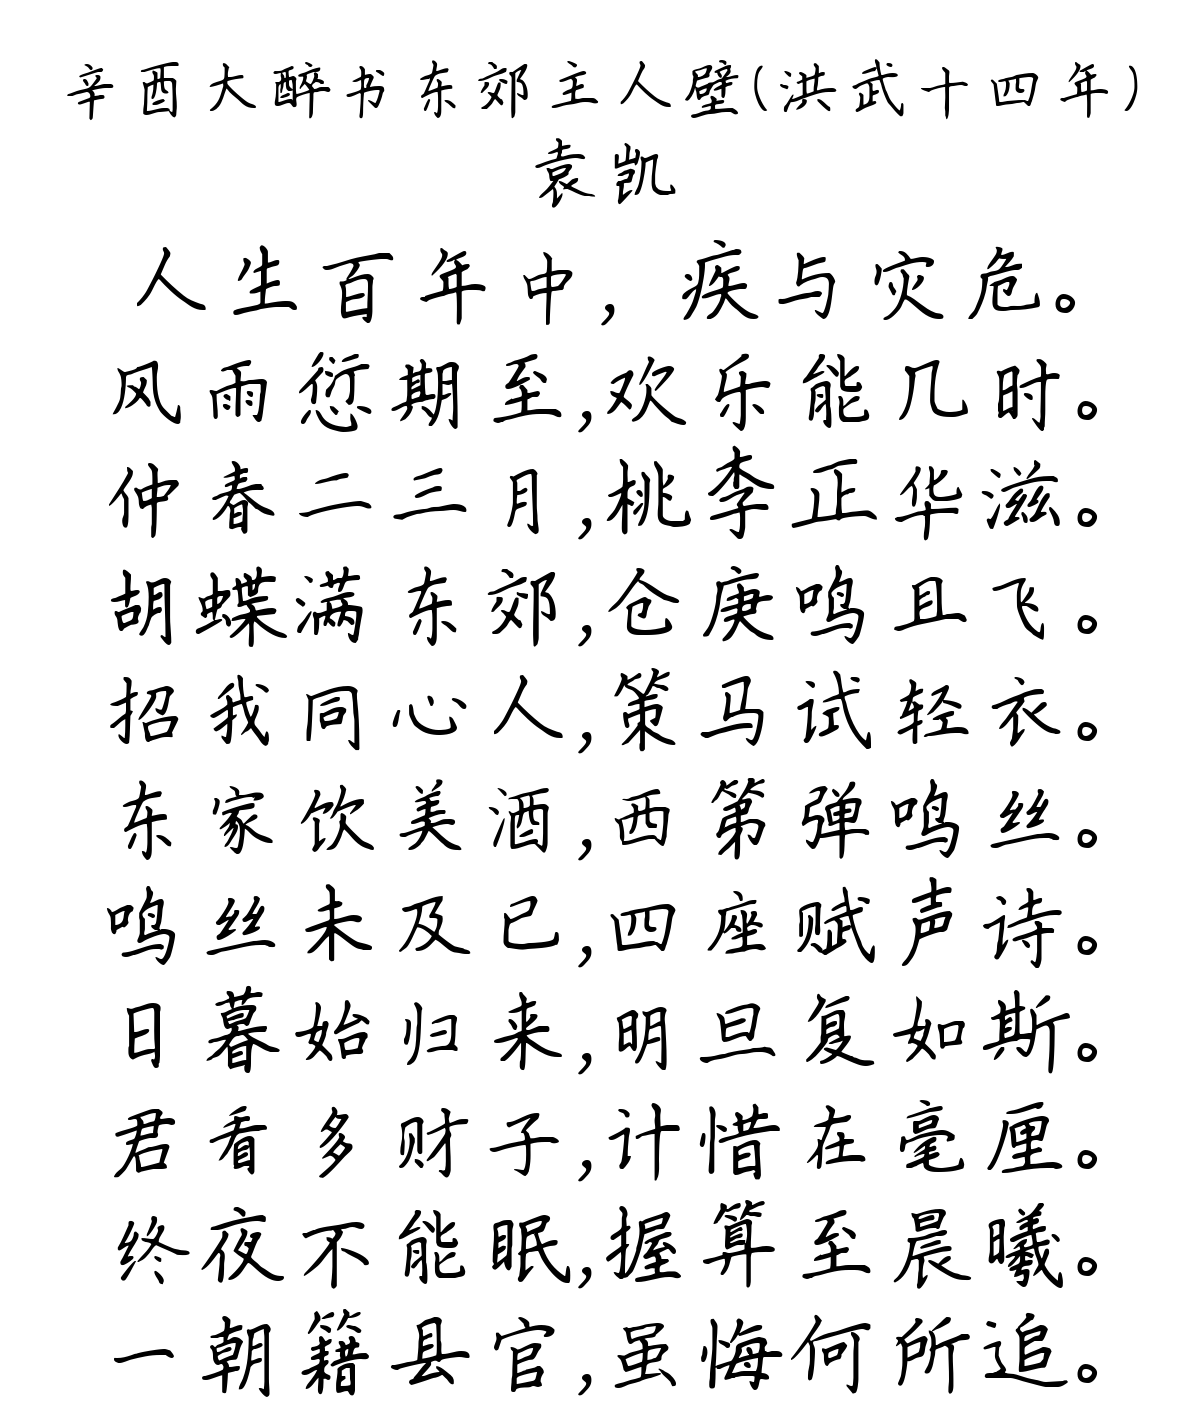 辛酉大醉书东郊主人壁(洪武十四年)
袁凯
人生百年中，疾与灾危。
风雨愆期至,欢乐能几时。
仲春二三月,桃李正华滋。
胡蝶满东郊,仓庚鸣且飞。
招我同心人,策马试轻衣。
东家饮美酒,西第弹鸣丝。
鸣丝未及已,四座赋声诗。
日暮始归来,明旦复如斯。
君看多财子,计惜在毫厘。
终夜不能眠,握算至晨曦。
一朝籍县官,虽悔何所追。